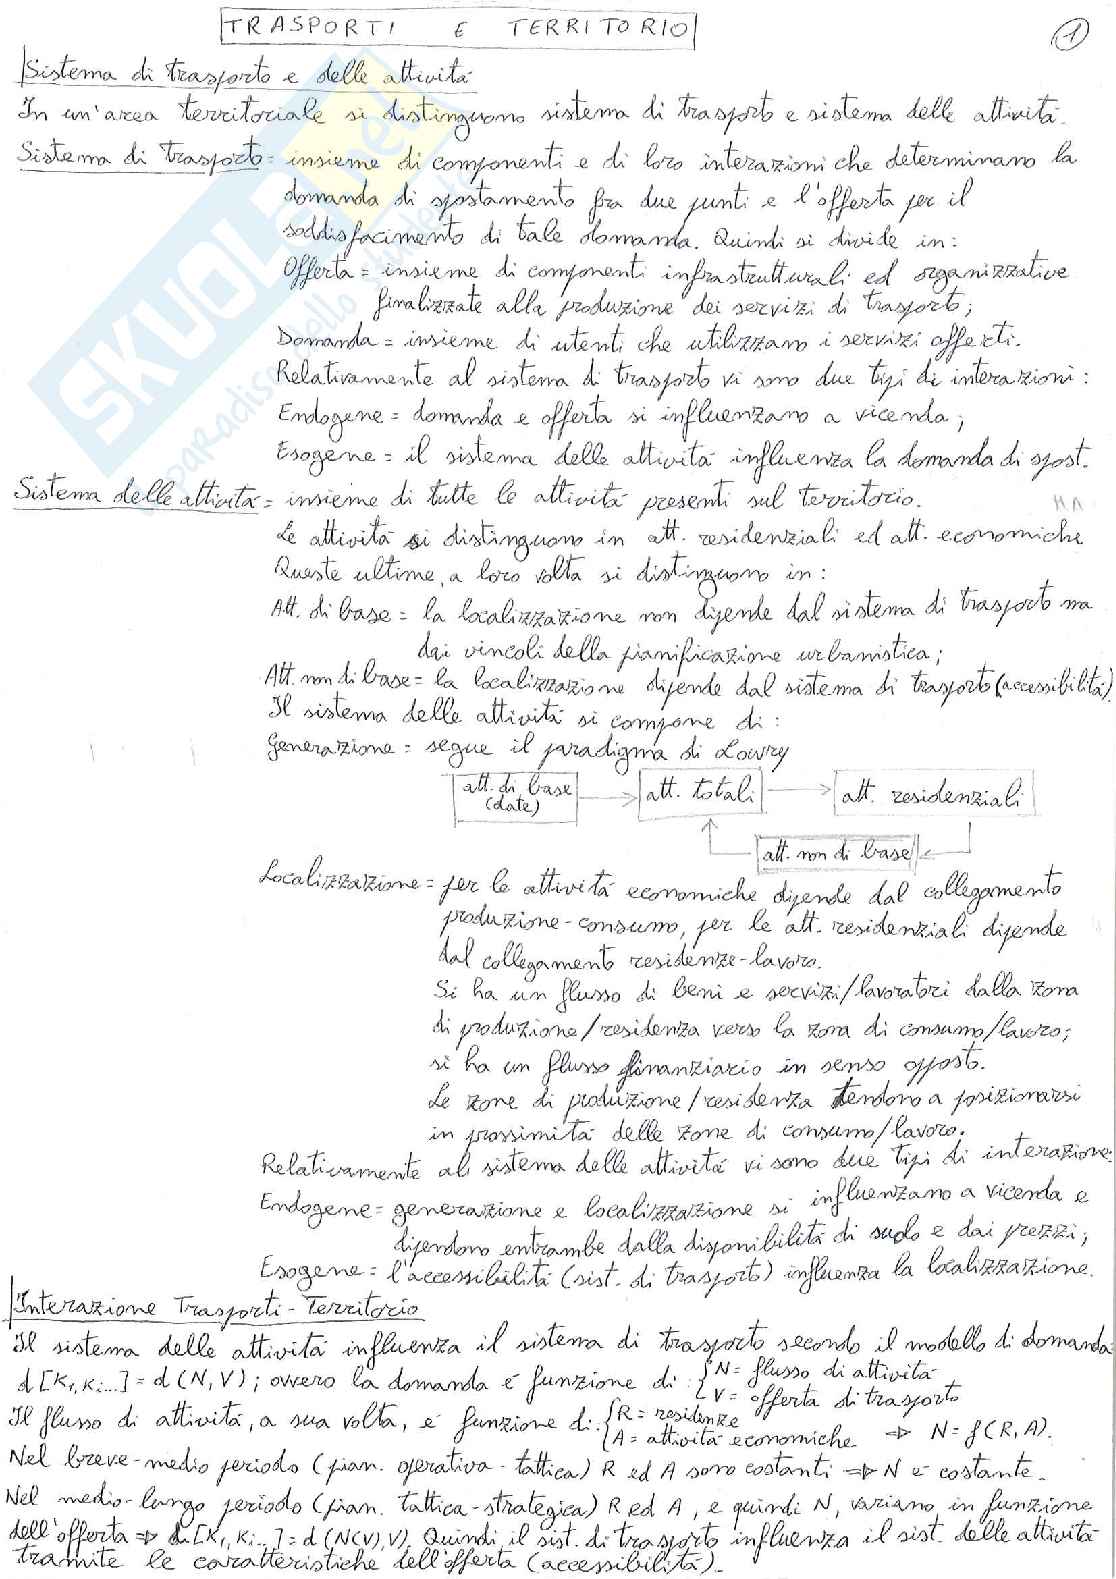 TRASPORTI E TERRITORIO
1
Sistema di trasporto e delle attività
In un'area territoriale si distinguono sistema di trasporto e sistema delle attività.
Sistema di trasporto = insieme di componenti e di loro interazioni che determinano la
domanda di spostamento fra due punti e l'offerta per il
soddisfacimento di tale domanda. Quindi si divide in:
Offerta = insieme di componenti infrastrutturali ed organizzative
finalizzate alla produzione dei servizi di trasporto;
Domanda = insieme di utenti che utilizzano i servizi offerti.
Relativamente al sistema di trasporto vi sono due tipi di interazioni:
Endogene = domanda e offerta si influenzano a vicenda;
Esogene = il sistema delle attività influenza la domanda di spost.
Sistema delle attività = insieme di tutte le attività presenti sul territorio.
Le attività si distinguono in att. residenziali ed att. economiche
Queste ultime, a loro volta si distinguono in:
Att. di base = la localizzazione non dipende dal sistema di trasporto ma
dai vincoli della pianificazione urbanistica;
Att. non di base = la localizzazione dipende dal sistema di trasporto (accessibilità).
Il sistema delle attività si compone di:
Generazione = segue il paradigma di Lowry
att. di base (date) → att. totali → att. residenziali
att. non di base
Localizzazione = per le attività economiche dipende dal collegamento
produzione-consumo, per le att. residenziali dipende
dal collegamento residenze-lavoro.
Si ha un flusso di beni e servizi/lavoratori dalla zona
di produzione/residenza verso la zona di consumo/lavoro;
si ha un flusso finanziario in senso opposto.
Le zone di produzione/residenza tendono a posizionarsi
in prossimità delle zone di consumo/lavoro.
Relativamente al sistema delle attività vi sono due tipi di interazione:
Endogene = generazione e localizzazione si influenzano a vicenda e
dipendono entrambe dalla disponibilità di suolo e dai prezzi;
Esogene = l'accessibilità (sist. di trasporto) influenza la localizzazione.
Interazione Trasporti-Territorio
Il sistema delle attività influenza il sistema di trasporto secondo il modello di domanda
d[K1,Ki...] = d(N,V); ovvero la domanda è funzione di: { N = flusso di attività
V = offerta di trasporto
Il flusso di attività, a sua volta, è funzione di: { R = residenze
A = attività economiche ⇒ N = f(R,A).
Nel breve-medio periodo (pian. operativa-tattica) R ed A sono costanti ⇒ N è costante.
Nel medio-lungo periodo (pian. tattica-strategica) R ed A, e quindi N, variano in funzione
dell'offerta ⇒ d[K1,Ki...] = d(N(V),V). Quindi il sist. di trasporto influenza il sist. delle attività
tramite le caratteristiche dell'offerta (accessibilità).
SKUOLA.net